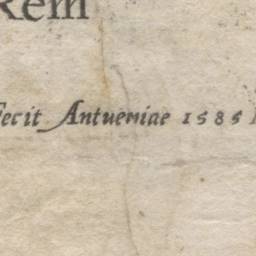 Rem
fecit Antuerniae 1585